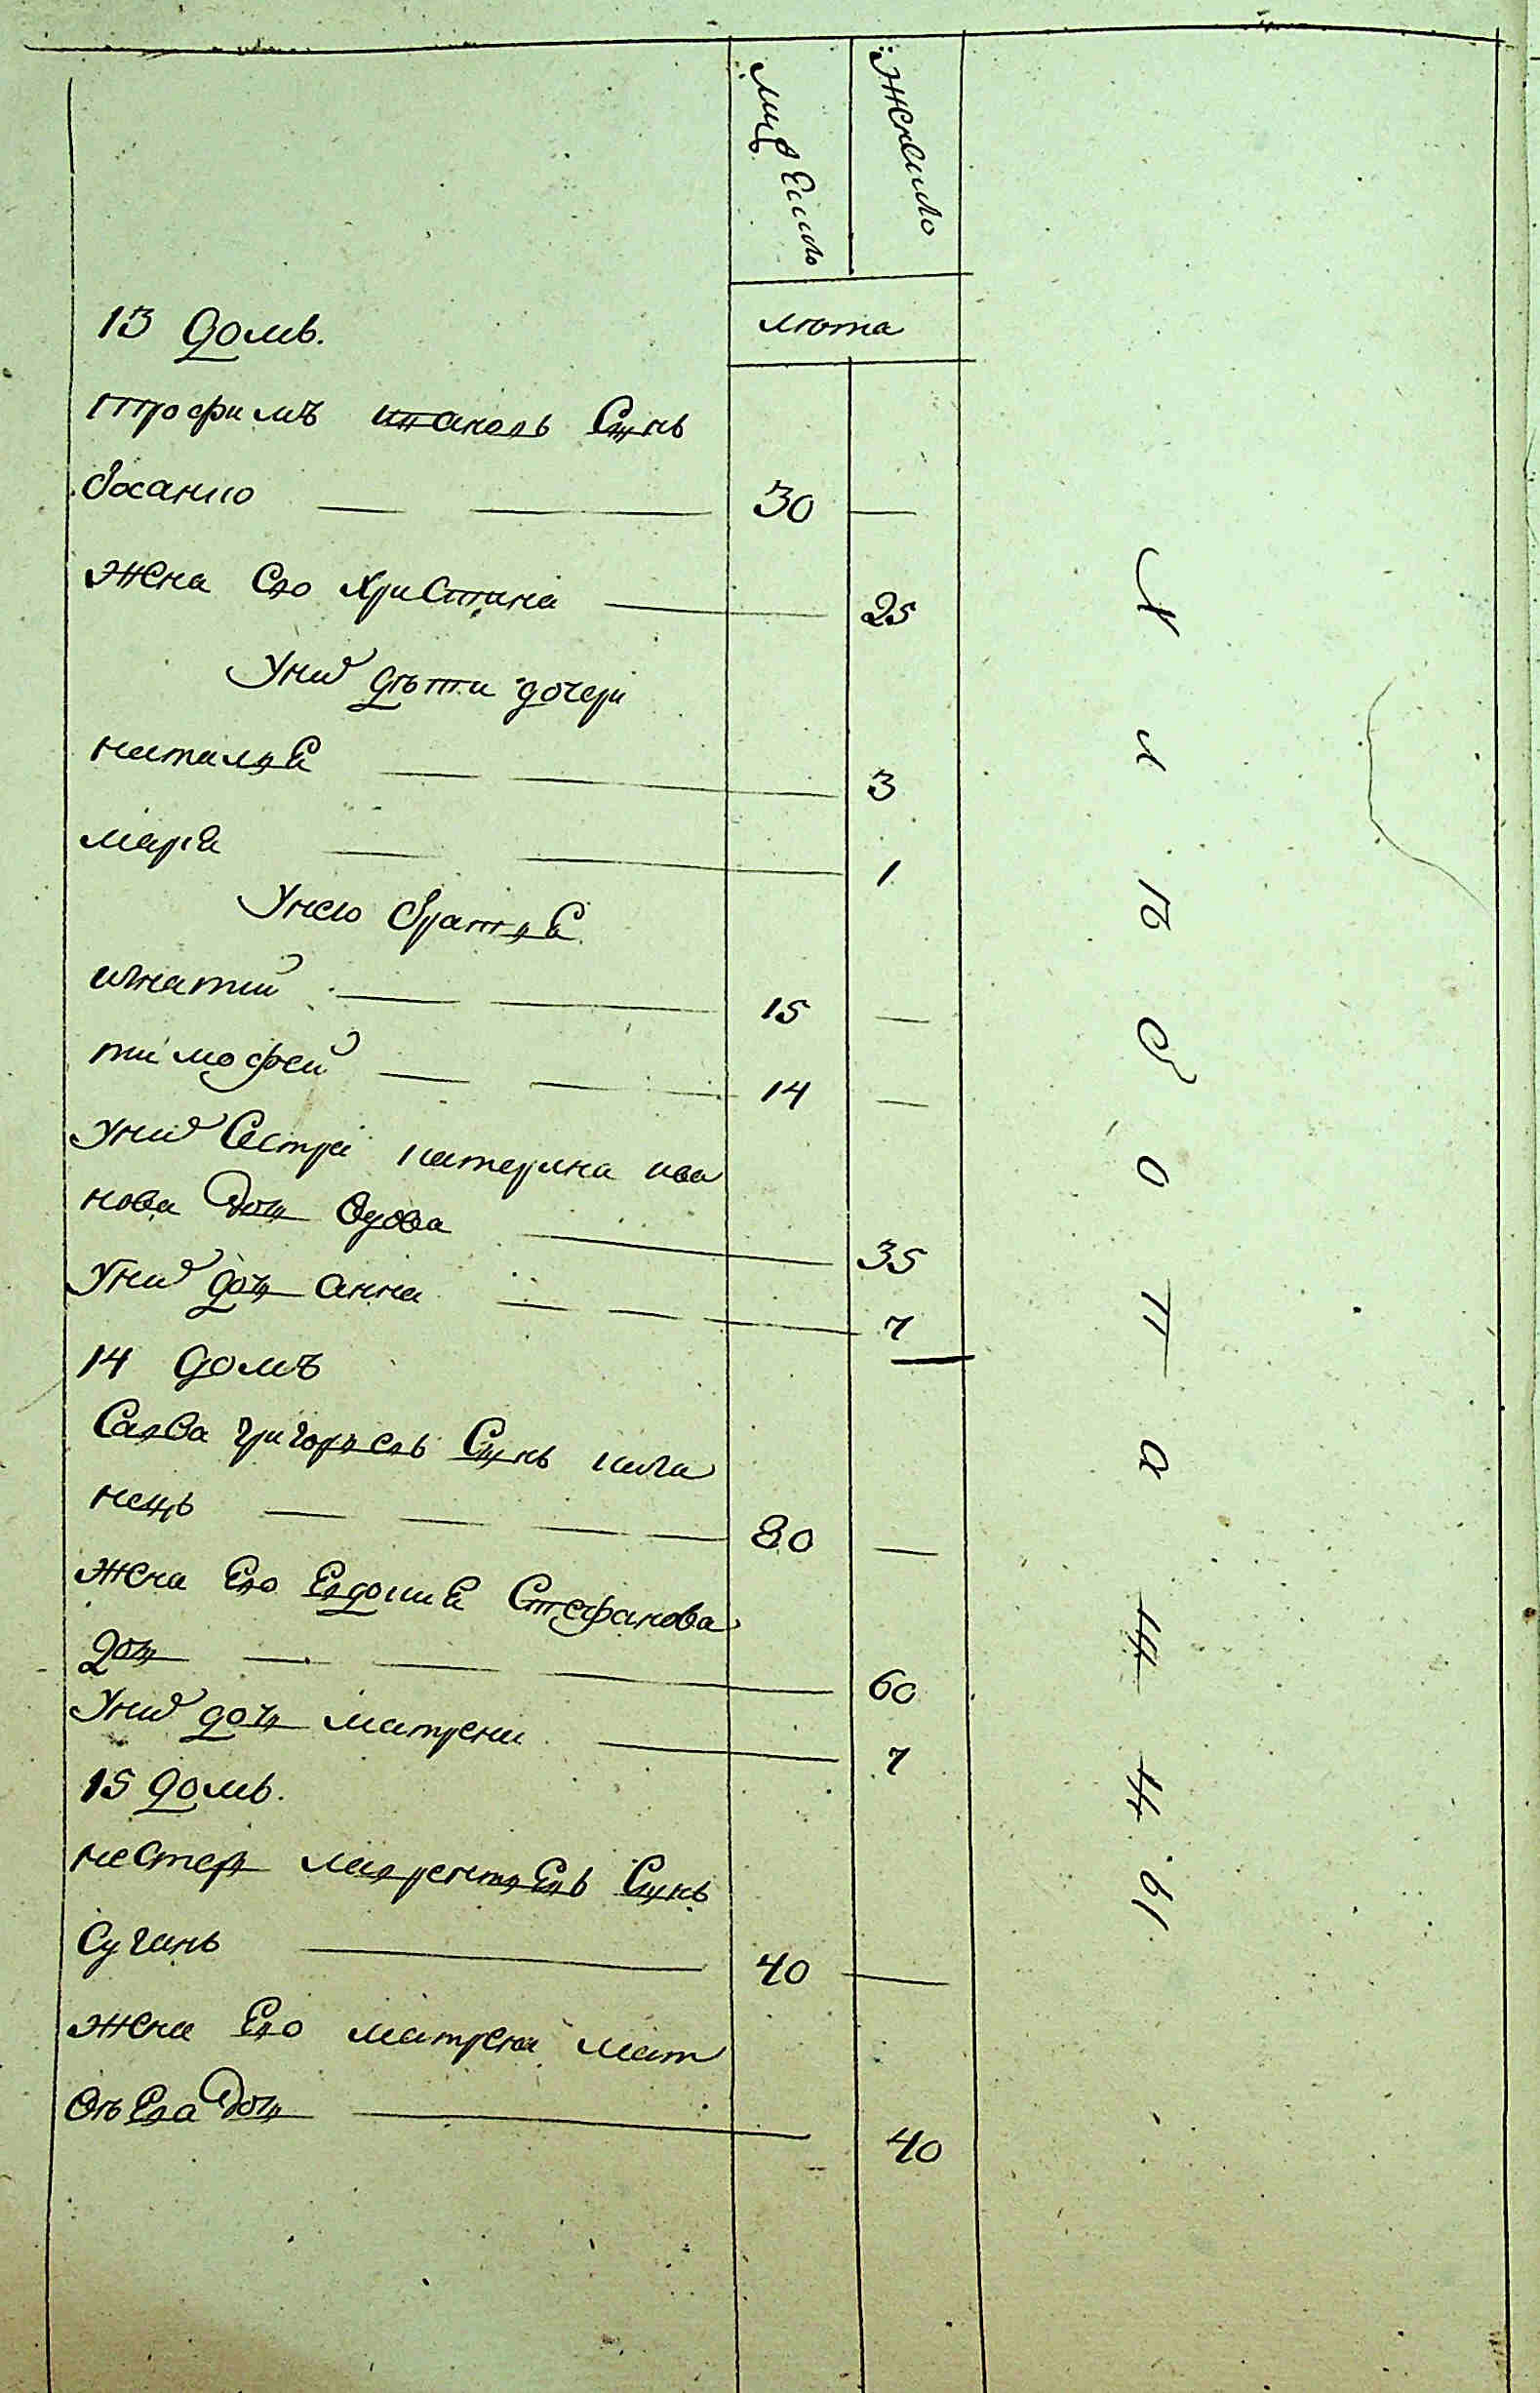 муж Ескъ
женско
лѣта
13 домъ.
трофимъ Сынъ
босанко 30
жена Его христина 25
Уних дѣти дочери
наталья 3
марія 1
Унего братья
игнатий 15
тимофей 14
Уних Сестра катерина ива
нова доч вдова 35
Уних доч анна 7
14 домъ
Савва григорьевъ Сынъ кала
нецъ 80
жена Его Евдокия Стефанова
доч 60
Уних доч матрена 7
15 домъ.
нестеръ лаврентьевъ Сынъ
Сучанъ 40
жена Его матрена мат
вѣЕва доч 40
хлѣбопашцы